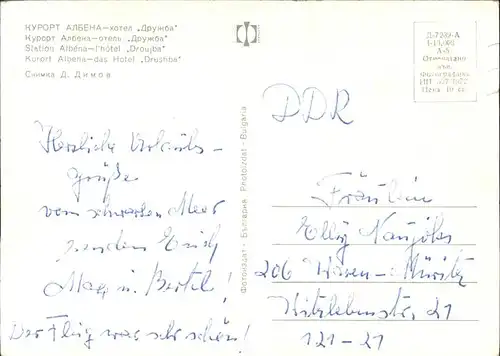 КУРОРТ АЛБЕНА—хотел „Дружба"
Курорт Албена—отель „Дружба"
Station Albéna—l'hôtel „Droujba"
Kurort Albena—das Hotel „Drushba"
Снимка Д. Димов
Д-7239-А
А-6
Отпечатано
Цена 10 ст.
Фотоиздат - Българиа Photoizdat - Bulgaria
Herzliche Urlaubs-
grüße
vom schwarzen Meer
senden Euch
Max u. Bertel!
Der Flug war sehr schön!
DDR
Fräulein
Elly
206 Waren-Müritz
21
121-21